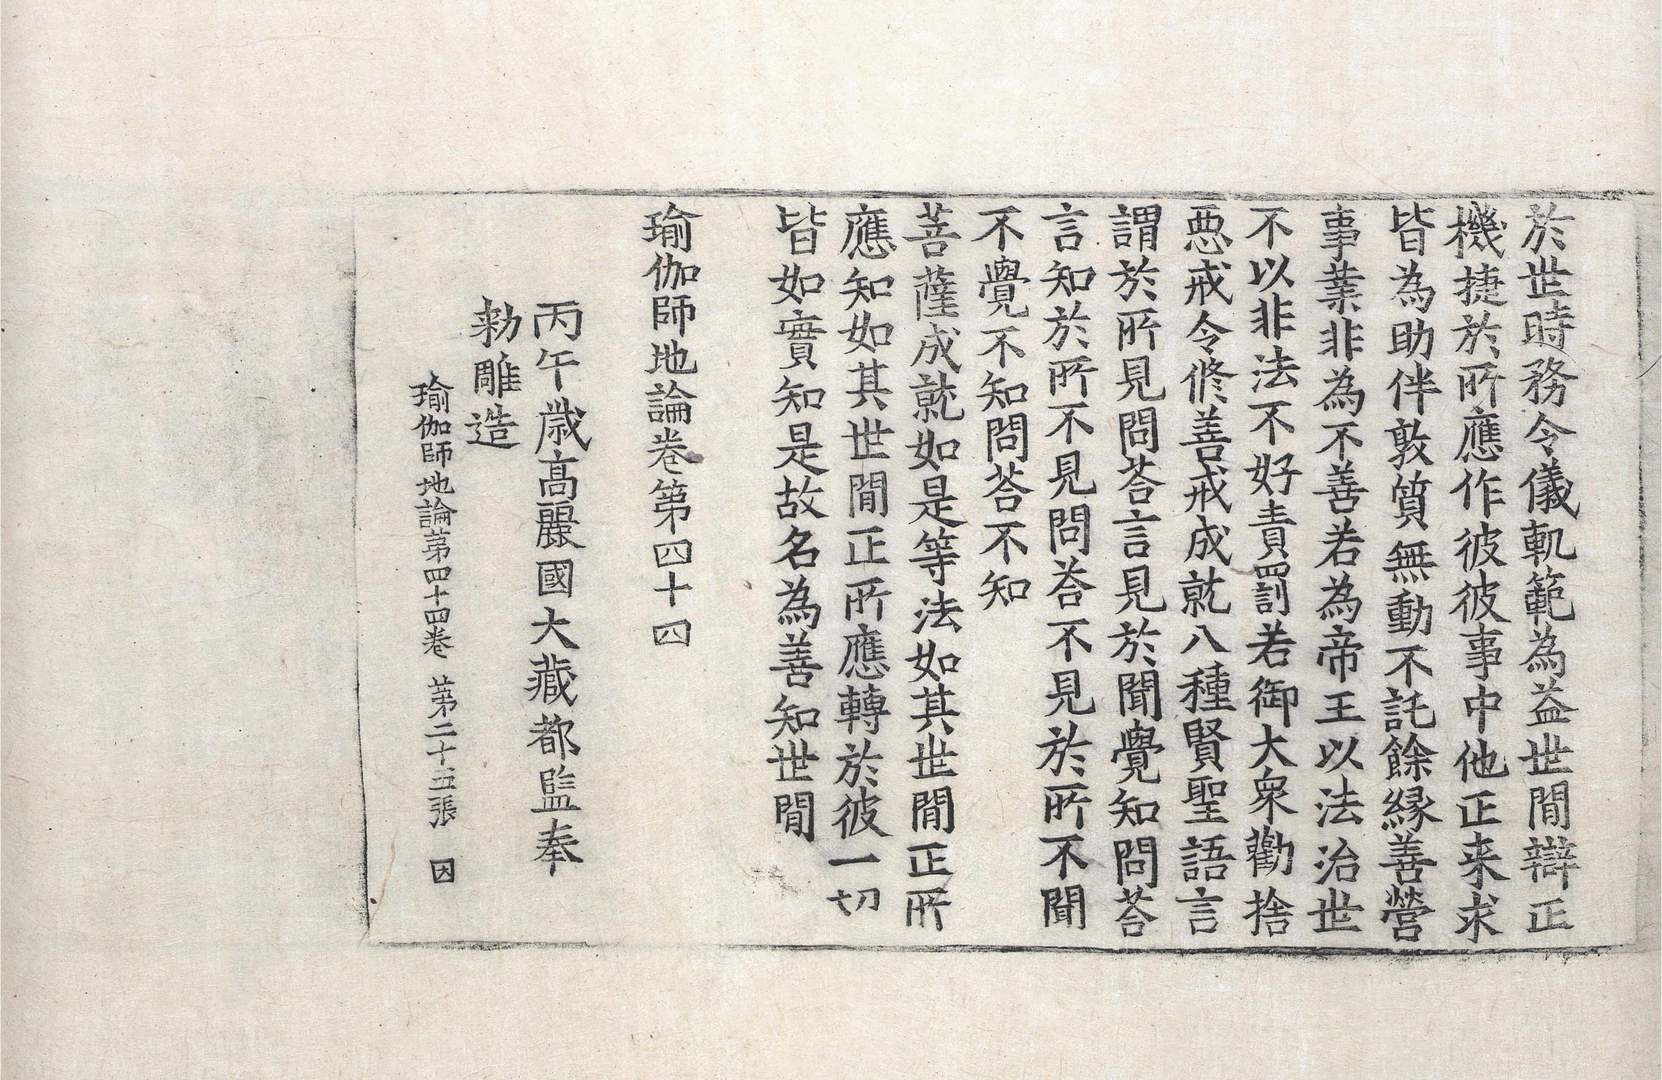 於世時務令儀軌範為益世間辯正
機捷於所應作彼彼事中他正来求
皆為助伴敦質無動不託餘緣善營
事業非為不善若為帝王以法治世
不以非法不好責罰若御大衆勸捨
惡戒令修善戒成就八種賢聖語言
謂於所見問荅言見於聞覺知問荅
言知於所不見問荅不見於所不聞
不覺不知問荅不知
菩薩成就如是等法如其世間正所
應知如其世間正所應轉於彼一切
皆如實知是故名為善知世間
瑜伽師地論卷第四十四
丙午歲高麗國大藏都監奉
勅雕造
瑜伽師地論第四十四卷 第二十五張 因